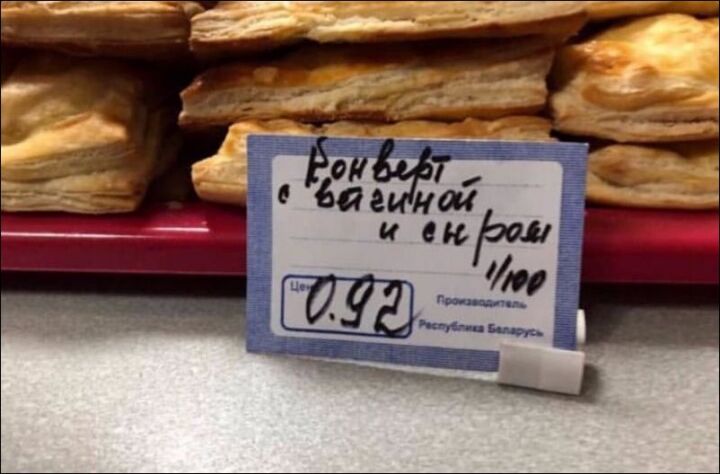 Конверт
с вагиной
и сыром
1/100
Цена
0.92
Производитель
Республика Беларусь